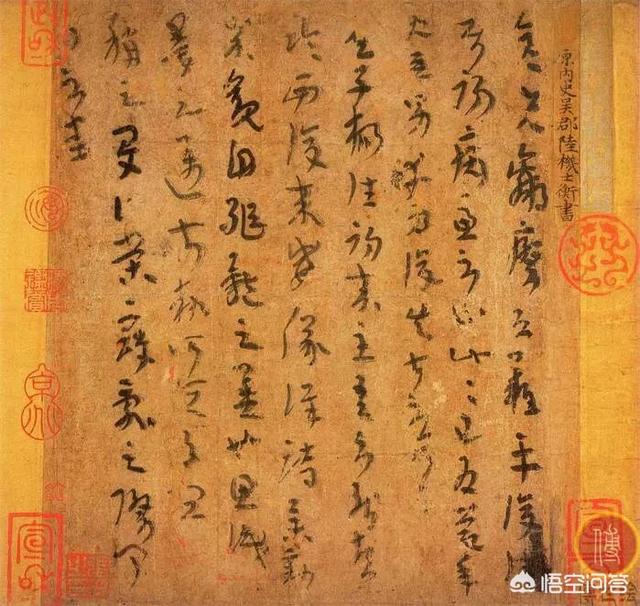 晉內史吳郡陸機士衡書
彥先羸瘵恐難平復往屬
初病慮不止此此已為慶承
使唯男幸為復失前憂耳
吳子楊往初來主吾不能盡
臨西復來威儀詳跱舉動
成觀自軀體之美也思識
量之邁前執所恒有宜
稱之夏伯榮寇亂之際聞
問不悉
悟空问答